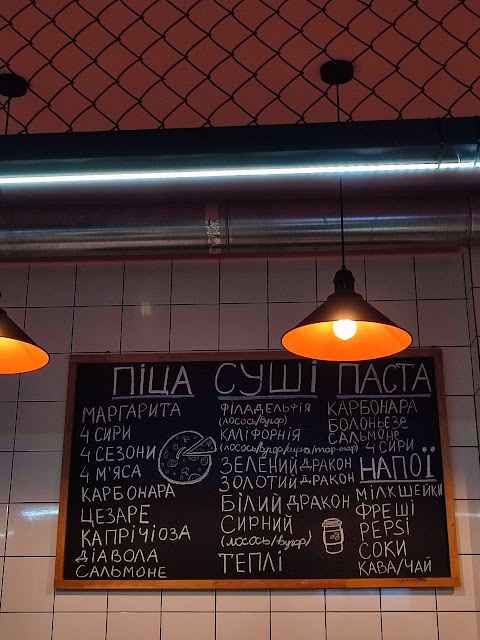 ПІЦА
МАРГАРИТА
4 СИРИ
4 СЕЗОНИ
4 М'ЯСА
КАРБОНАРА
ЦЕЗАРЕ
КАПРІЧІОЗА
ДІАВОЛА
САЛЬМОНЕ
СУШІ
ФІЛАДЕЛЬФІЯ
(лосось/вугор)
КАЛІФОРНІЯ
(лосось/вугор/сирна/тар-тар)
ЗЕЛЕНИЙ ДРАКОН
ЗОЛОТИЙ ДРАКОН
БІЛИЙ ДРАКОН
СИРНИЙ
(лосось/вугор)
ТЕПЛІ
ПАСТА
КАРБОНАРА
БОЛОНЬЄЗЕ
САЛЬМОНЕ
4 СИРИ
НАПОЇ
МІЛКШЕЙКИ
ФРЕШІ
PEPSI
СОКИ
КАВА/ЧАЙ